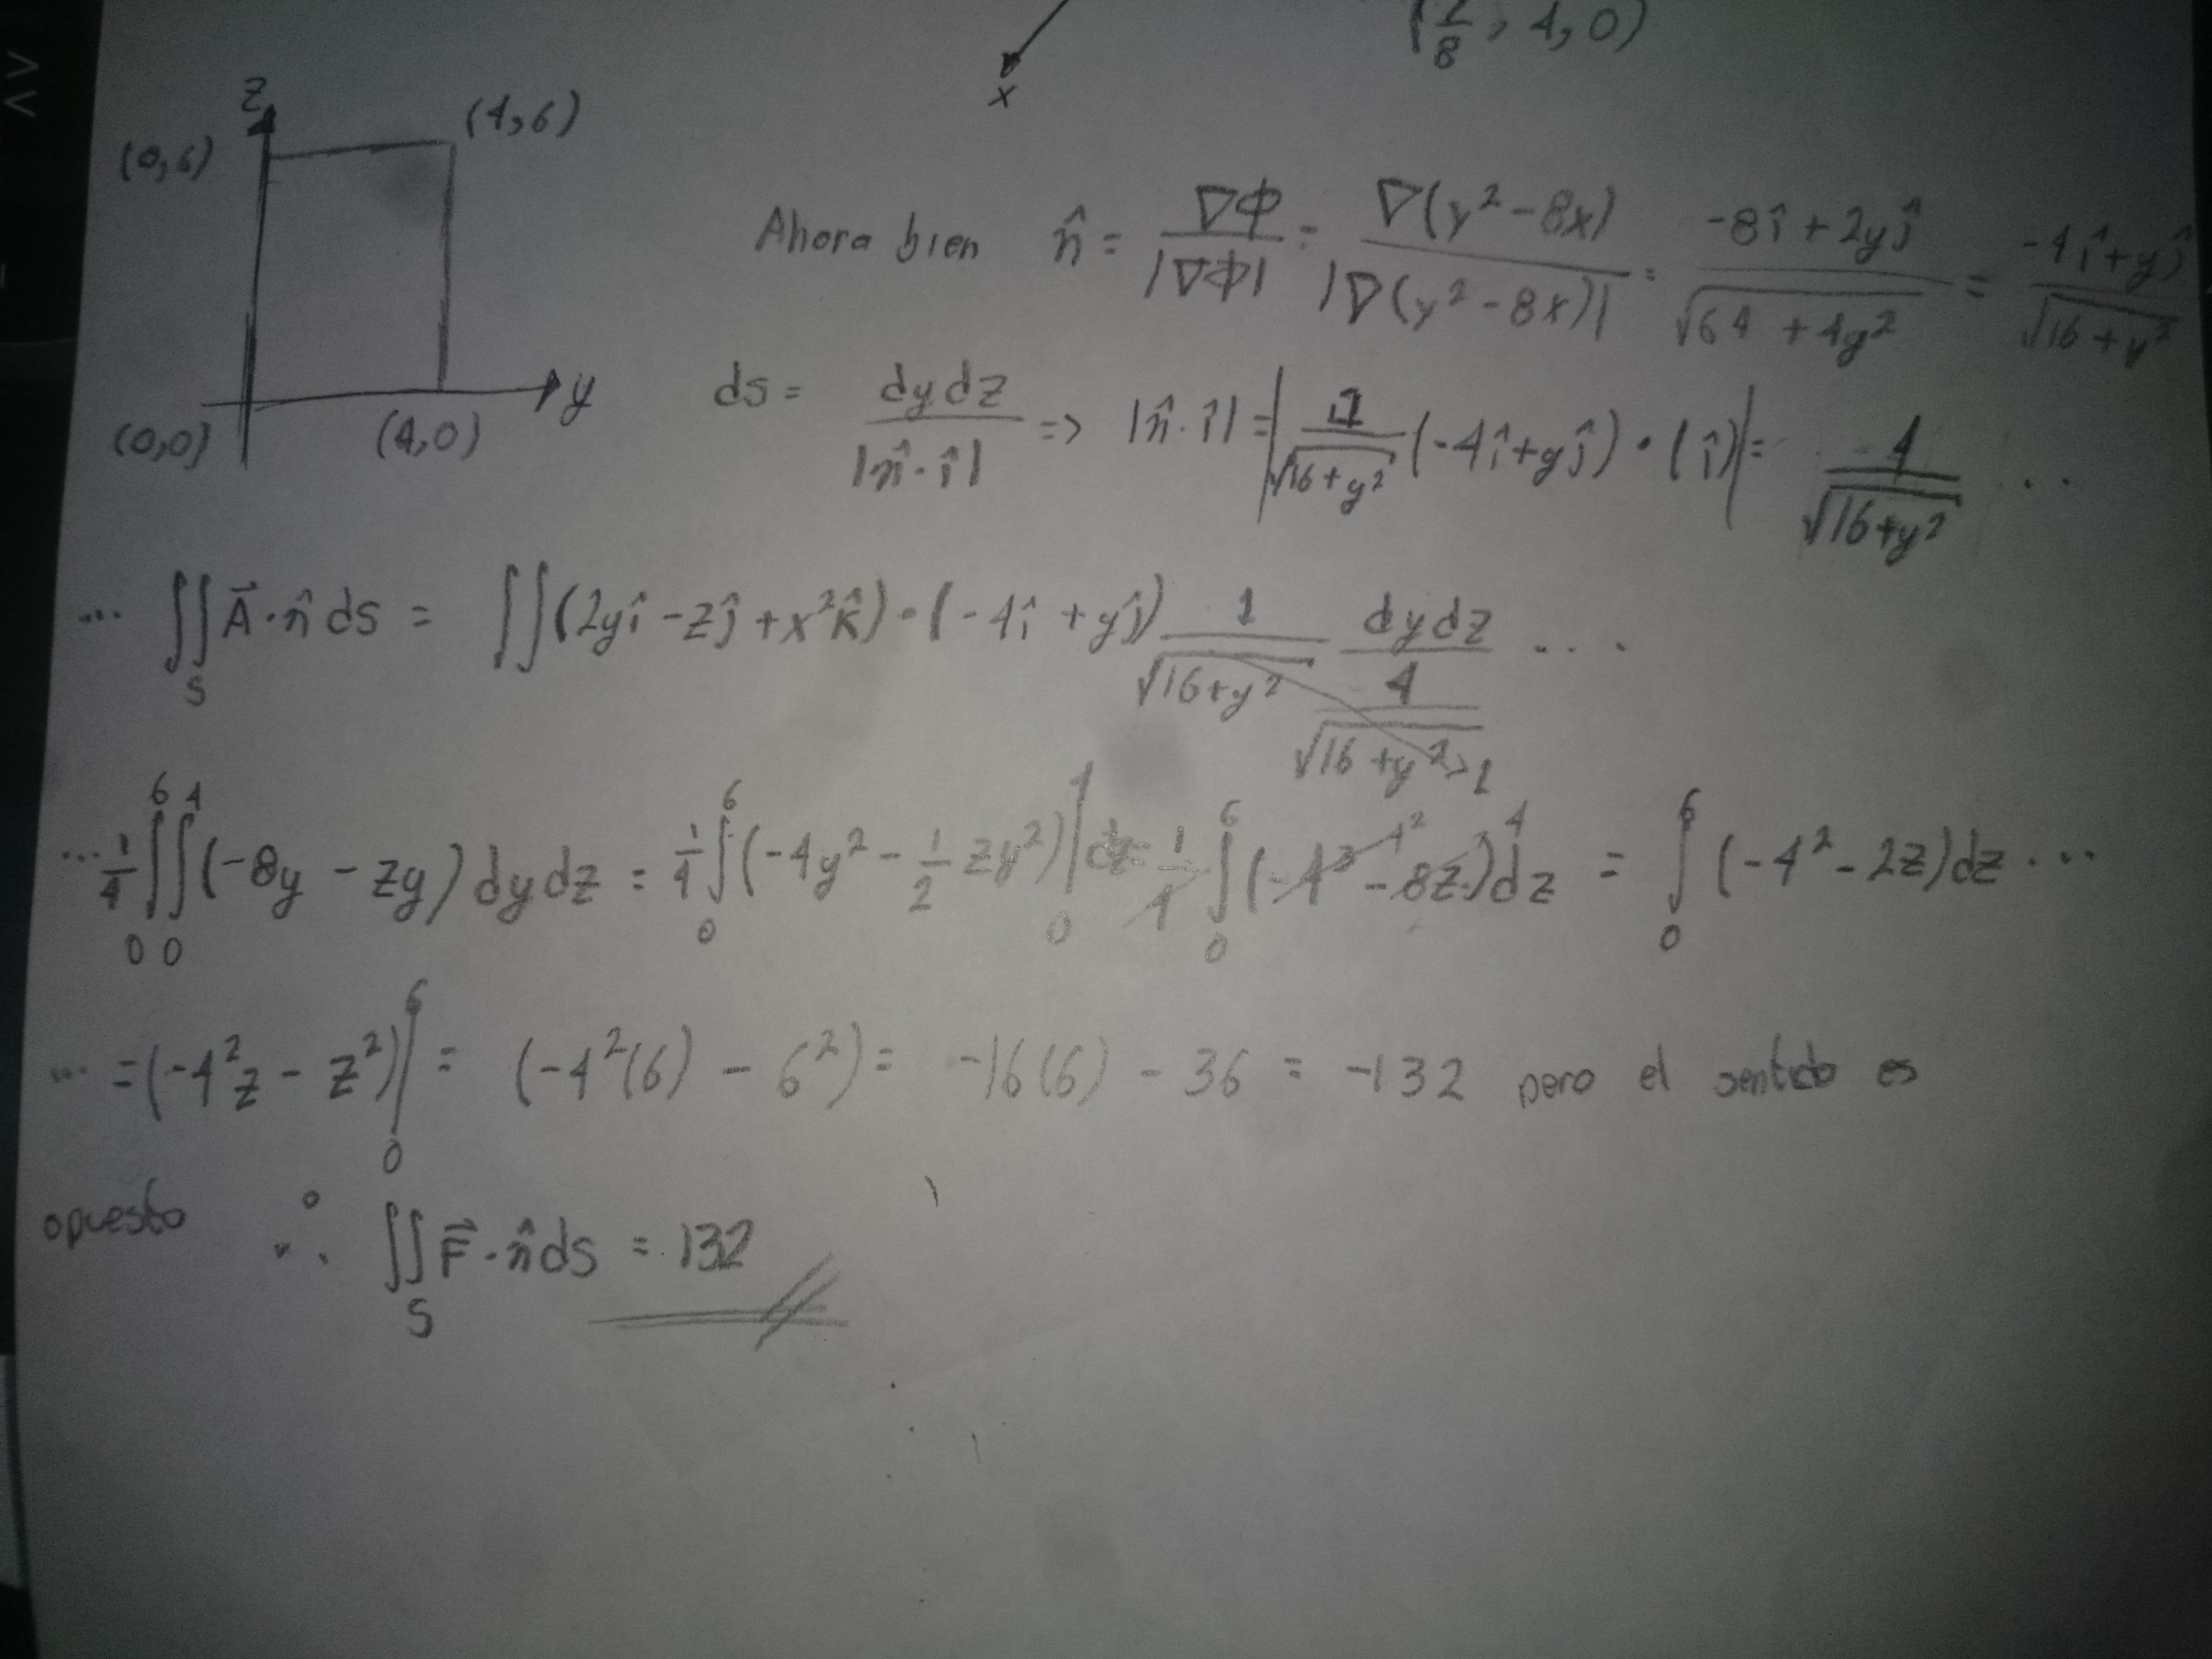 (1/8, 4, 0)
x
z
(0,6) (4,6)
(0,0) (4,0) y
Ahora bien n̂ = ∇Φ/|∇Φ| = ∇(y² - 8x)/|∇(y² - 8x)| = (-8î + 2yĵ)/√(64 + 4y²) = (-4î + yĵ)/√(16 + y²)
ds = dydz/|n̂·î| => |n̂·î| = |1/√(16+y²) (-4î+yĵ)·(î)| = 4/√(16+y²) ...
... ∬_S A⃗·n̂ ds = ∬(2yî - zĵ + x²k̂)·(-4î + yĵ) 1/√(16+y²) dydz/(4/√(16+y²)) ...
... 1/4 ∫₀⁶∫₀⁴ (-8y - zy) dydz = 1/4 ∫₀⁶ (-4y² - 1/2 zy²)|₀⁴ dz = 1/4 ∫₀⁶ (-4³ - 8z) dz = ∫₀⁶ (-4² - 2z)dz ...
... = (-4²z - z²)|₀⁶ = (-4²(6) - 6²) = -16(6) - 36 = -132 pero el sentido es
opuesto ∴ ∬_S F⃗·n̂ds = 132